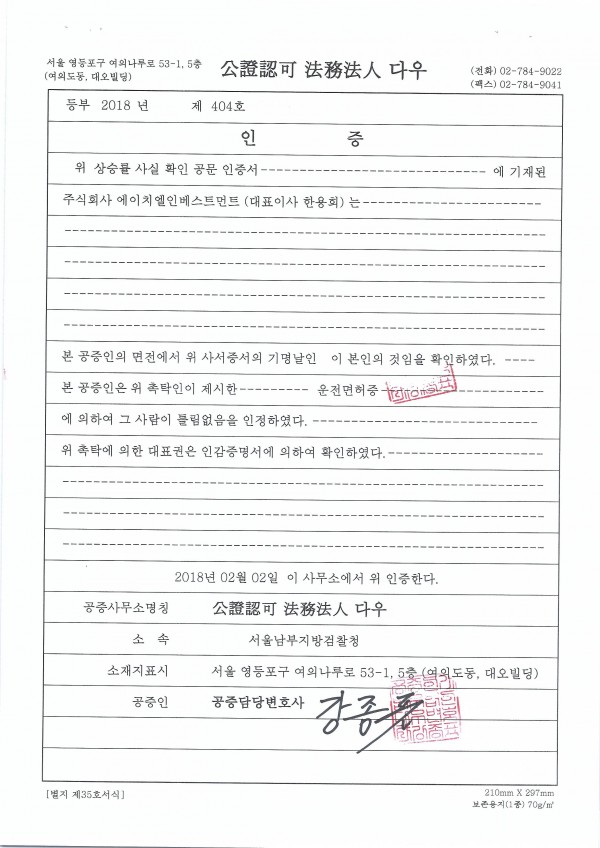 서울 영등포구 여의나루로 53-1, 5층
(여의도동, 대오빌딩)
公證認可 法務法人 다우
(전화) 02-784-9022
(팩스) 02-784-9041
등부 2018 년 제 404호
인 증
위 상승률 사실 확인 공문 인증서------------------------------ 에 기재된
주식회사 에이치엘인베스트먼트 (대표이사 한용희) 는------------------------
본 공증인의 면전에서 위 사서증서의 기명날인 이 본인의 것임을 확인하였다. ----
본 공증인은 위 촉탁인이 제시한--------- 운전면허증
에 의하여 그 사람이 틀림없음을 인정하였다. ------------------------------
위 촉탁에 의한 대표권은 인감증명서에 의하여 확인하였다.---------------------
2018년 02월 02일 이 사무소에서 위 인증한다.
공증사무소명칭 公證認可 法務法人 다우
소 속 서울남부지방검찰청
소재지표시 서울 영등포구 여의나루로 53-1, 5층 (여의도동, 대오빌딩)
공증인 공증담당변호사 강종
[별지 제35호서식]
210mm X 297mm
보존용지(1종) 70g/㎡